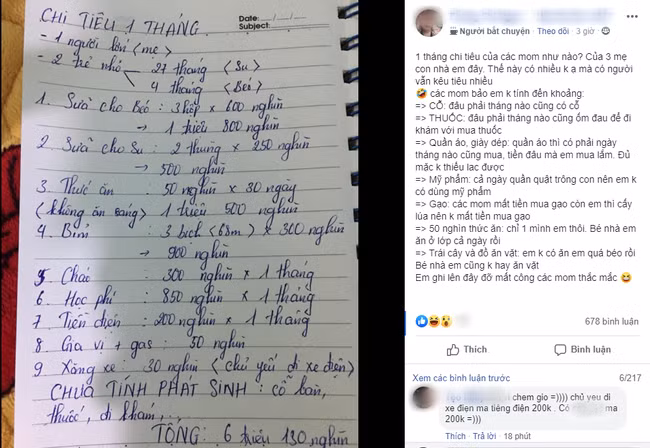 CHI TIÊU 1 THÁNG
Date:
Subject:
- 1 người lớn (mẹ)
- 2 trẻ nhỏ
27 tháng (Su)
4 tháng (Béo)
1. Sữa cho Béo : 3 hộp × 600 nghìn
→ 1 triệu 800 nghìn
2. Sữa cho Su : 2 thùng × 250 nghìn
→ 500 nghìn
3. Thức ăn : 50 nghìn × 30 ngày
(không ăn sáng) 1 triệu 500 nghìn
4. Bỉm : 3 bịch (68m) × 300 nghìn
→ 900 nghìn
5. Cháo : 300 nghìn × 1 tháng
6. Học phí : 850 nghìn × 1 tháng
7 Tiền điện : 200 nghìn × 1 tháng
8 Gia vị + gas : 50 nghìn
9 Xăng xe : 30 nghìn (chủ yếu đi xe điện)
CHƯA TÍNH PHÁT SINH : cỗ bàn,
thuốc, đi khám, ...
TỔNG : 6 triệu 130 nghìn
Người bắt chuyện · Theo dõi · 3 giờ ·
1 tháng chi tiêu của các mom như nào? Của 3 mẹ
con nhà em đây. Thế này có nhiều k ạ mà có người
vẫn kêu tiêu nhiều
🤣 các mom bảo em k tính đến khoảng:
=> CỖ: đâu phải tháng nào cũng có cỗ
=> THUỐC: đâu phải tháng nào cũng ốm đau để đi
khám với mua thuốc
=> Quần áo, giày dép: quần áo thì có phải ngày
tháng nào cũng mua, tiền đâu mà em mua lắm. Đủ
mặc k thiếu lac được
=> Mỹ phẩm: cả ngày quần quật trông con nên em k
có dùng mỹ phẩm
=> Gạo: các mom mất tiền mua gạo còn em thì cấy
lúa nên k mất tiền mua gạo
=> 50 nghìn thức ăn: chỉ 1 mình em thôi. Bé nhà em
ăn ở lớp cả ngày rồi
=> Trái cây và đồ ăn vặt: em k có ăn em quá béo rồi
Bé nhà em cũng k hay ăn vặt
Em ghi lên đây đỡ mất công các mom thắc mắc 😆
678 bình luận
Thích
Bình luận
Xem các bình luận trước
6/217
chem gio =)))) chủ yeu di
xe điẹn ma tiếng điện 200k . Có
ma 200k =)))
Thích · Trả lời · 18 phút